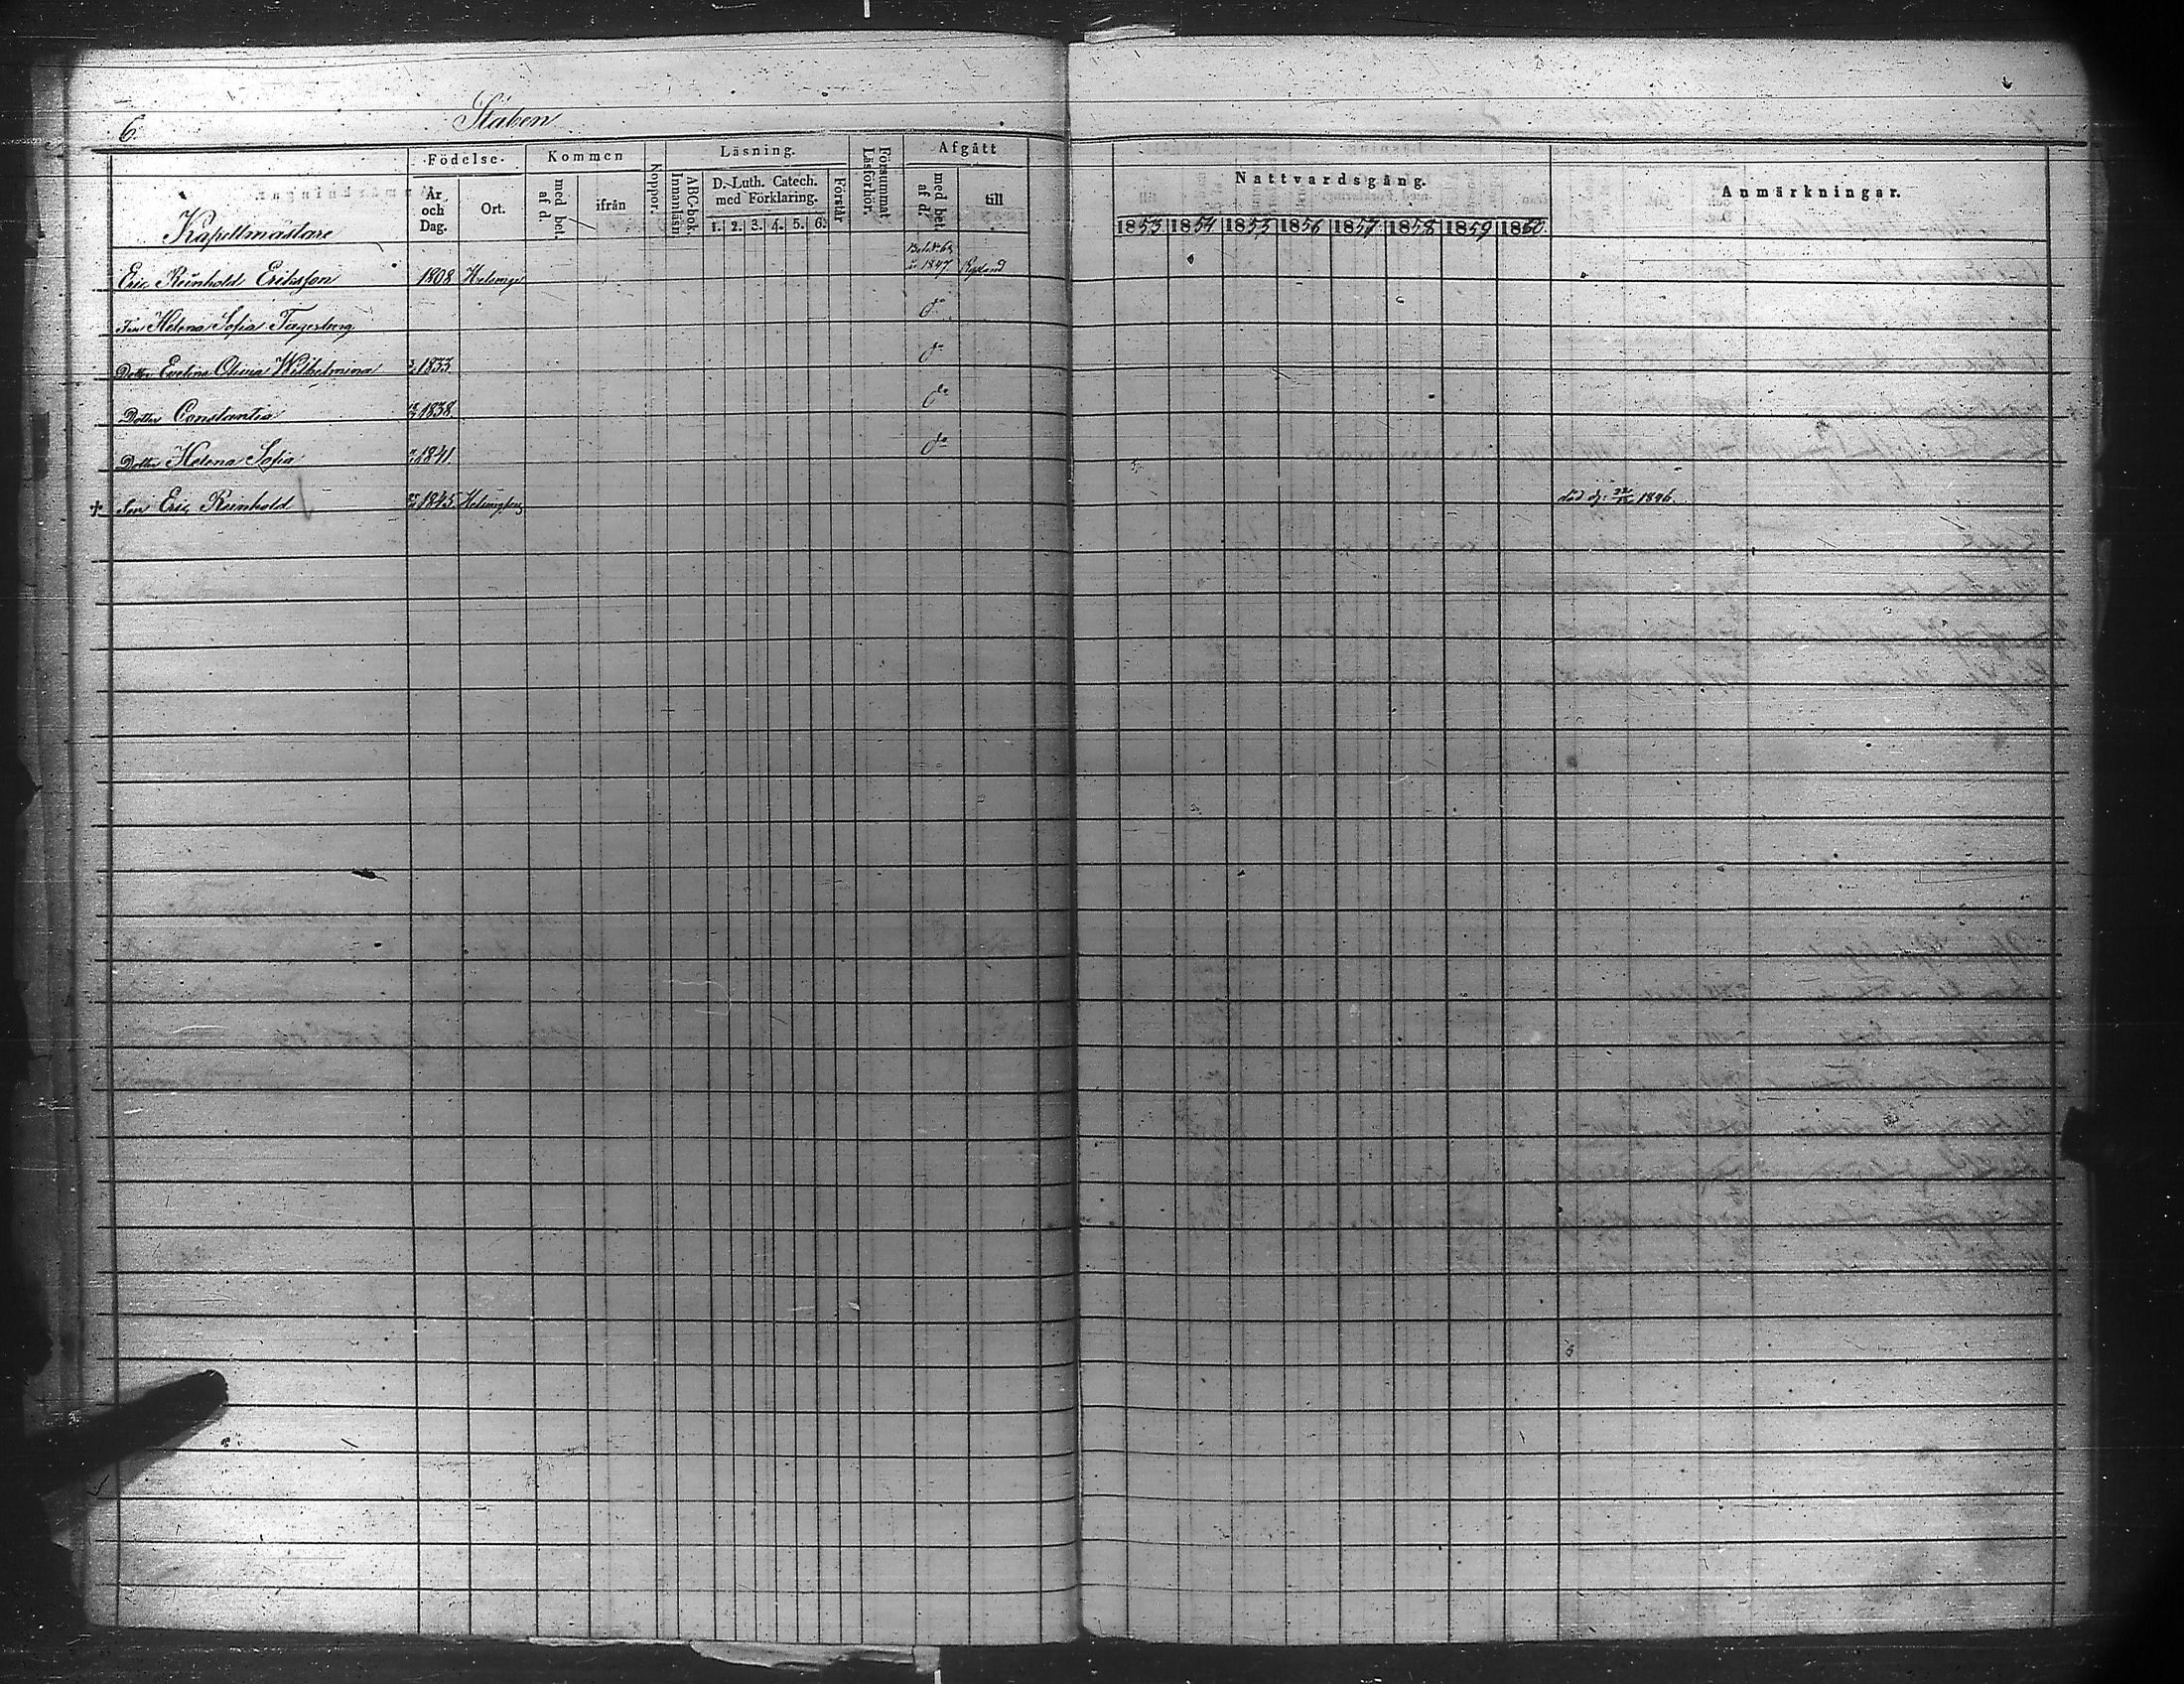 6.
Staben
Födelse. Kommen Koppor. Läsning. Försummat Läsförhör. Afgått
År och Dag. Ort. med bet. af d. ifrån ABC-bok. Innanläsn. D:r Luth. Catech. med Förklaring. Förstår med bet. af d. till
1. 2. 3. 4. 5. 6.
Nattvardsgång. Anmärkningar.
1853 1854 1855 1856 1857 1858 1859 1860
Kapellmästare
Eric Reinhold Eriksson 1808 Helsinge 1847 Ryssland
Helena Sofia Fagerberg do
Dotter Evelina Olivia Wilhelmina 1833 do
Dotter Constantia 1838 do
Dotter Helena Sofia 1841 do
† Son Eric Reinhold 1845 Helsingfors död d: 1846.